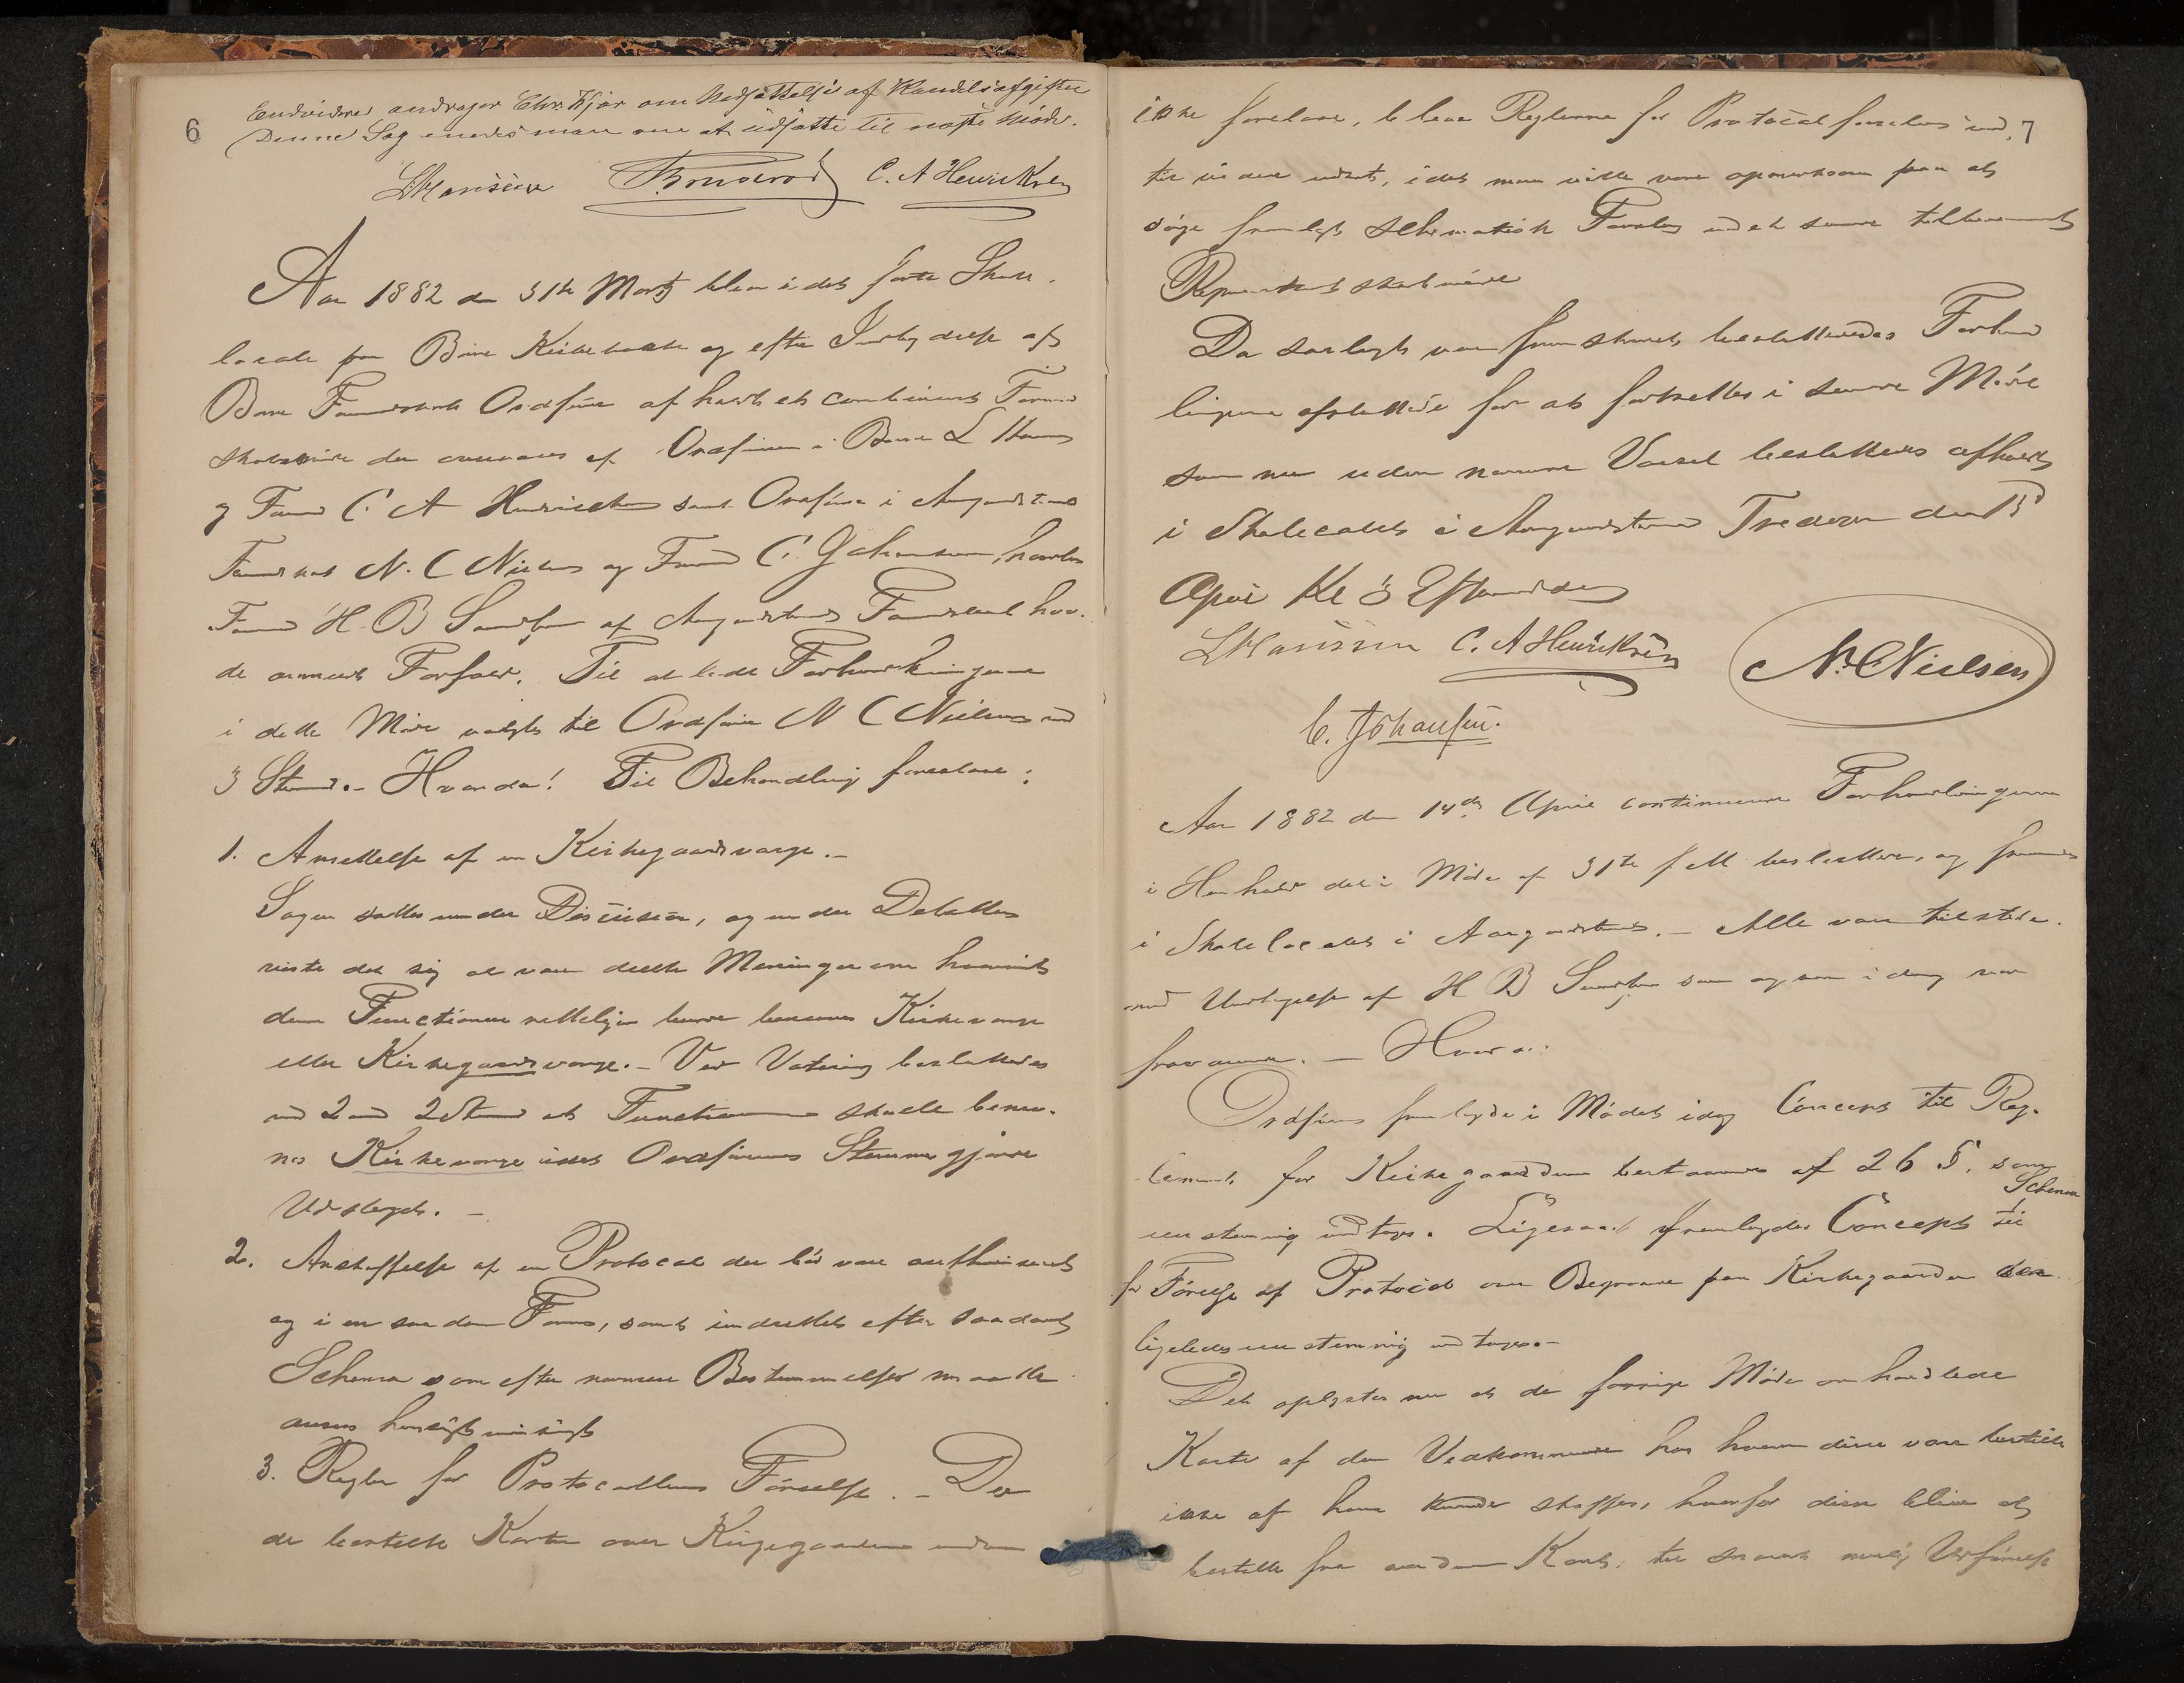 6
Endvidere andrager Chr. Kjær om Nedsættelse af Handelsafgiften
Denne Sag enedes man om at udsætte til næste Møde.
LHansen Bruserød C. A Henriksen
Aar 1882 den 31te Marts blev i det faste Skole-
locale paa Borre Kirkebakke og efter Indbydelse af
Borre Formandskabs Ordfører afholdt et combineret Formand
skabsmøde der overvares af Ordføreren i Borre L Hansen
og Formd C A Henriksen samt Ordfører i Aasgaardstrands
Formdskab N. C Nielsen og Formd C. Johansen, hvorhos
Formd H. B Sundby af Aasgaardstrands Formdskab hav-
de anmeldt Forfald. Til at lede Forhandlingerne
i dette Møde valgtes til Ordfører N C Nielsen med
3 Stemmr.- Hvorda! Til Behandling forelaae:
1. Ansettelse af en Kirkegaardsværge.-
Sagen sattes under Discusion, og under Debatten
viste det sig at være deelte Meninger om hvorvidt
denne Functionær rettelig en burde benevnes Kirkeværge
eller Kirkegaardsværge.- Ved Votering besluttedes
med 2 mod 2 Stemmr at Functionæren skulde benev-
nes Kirkeværge idet Ordførerens Stemme gjorde
Udslaget.-
2. Anskaffelse af en Protocol der bør være authoriseret
og i en saadan Form, samt inddeelt efter saadant
Schema som efter nærmere Bestemmelser maatte
ansees hensigtsmæssigt
3. Regler for Protocollens Førelse.- Da
de bestilte Karter over Kirkegaarden endnu
7
ikke forelaae, blev Reglerne for Protocolførelsen ind
til videre udsat, idet man vilde være opmerksom paa at
søge fremlagt Schematisk Forslag ved et senere tilkommende
Representantskabsmøde
Da saalangt var fremskredet besluttedes Forhand
lingerne afsluttede for at fortsettes i senere Møde
som nu uden nærmere Varsel besluttes afholdt
i Skolelocalet i Aasgaardstrand Fredag den 14d
April Kl 3 Eftermiddag
LHansen C. A Henriksen N. C Nielsen
C. Johansen.
Aar 1882 den 14de April continuerede Forhandlingerne
i Henhold det i Møde af 31te f M besluttede, og fremmødte
i Skolelocalet i Aasgaardstrand.- Alle vare tilstede
med Undtagelse af H B Sundby som ogsaa idag var
fraværende.- Hvorda:
Ordføreren fremlagde i Mødet idag Concept til Reg-
lement for Kirkegaarden bestaaende af 26 §. som
enstemmig vedtages. Ligesaa fremlagdes Concept til Schema
for Førelse af Protocol over Begravne paa Kirkegaarden der
ligeledes enstemmig vedtages.-
Det oplystes nu at de forrige Møde omhandlede
Karter af den Vedkommende hos hvem disse vare bestilte
ikke af ham kunde skaffes, hvorfor disse bleve at
bestille fra anden Kant, til snarest mulig Udførelse